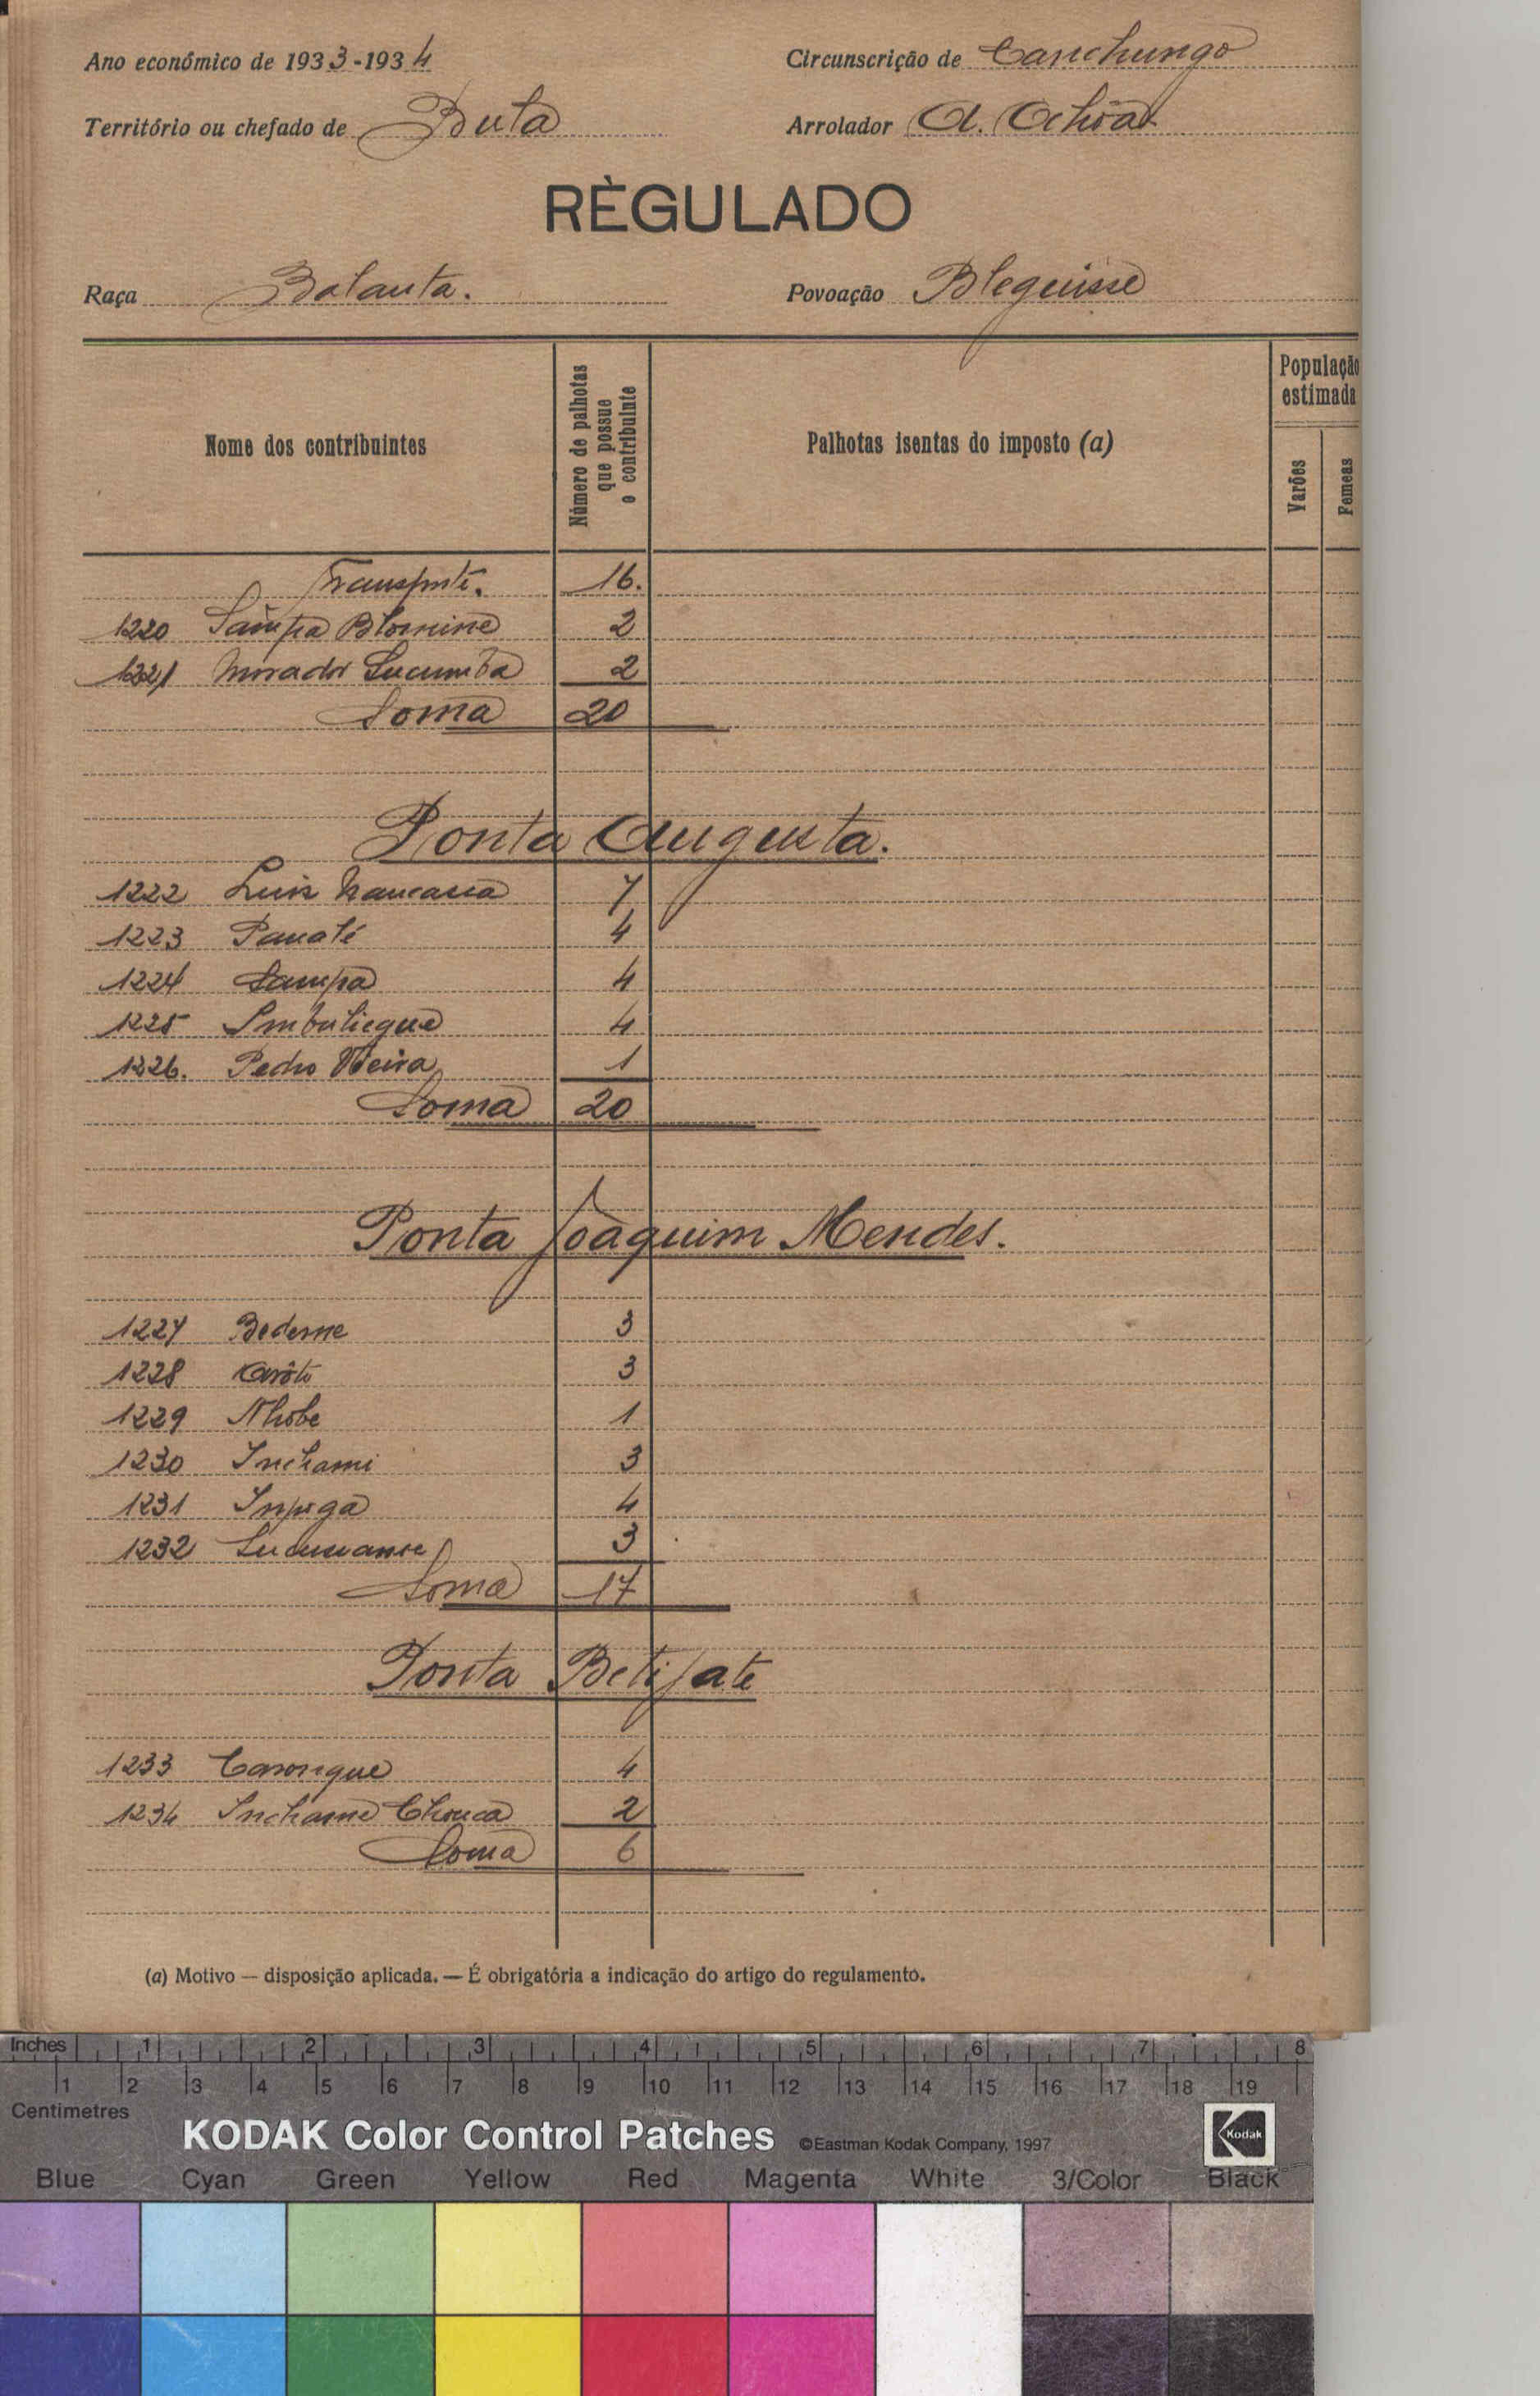 Ano económico de 1933-1934
Circunscrição de Canchungo
Território ou chefado de Buta
Arrolador A. Ochôa
RÈGULADO
Raça Balanta.
Povoação Bleguisse
Nome dos contribuintes
Número de palhotas que possue o contribuinte
Palhotas isentas do imposto (a)
População estimada
Varões
Femeas
Transporte. 16.
1220 Sampa Blomine 2
1221 Morador Sucumba 2
Soma 20
Ponta Augusta.
1222 Luis 7
1223 Panalé 4
1224 Sampa 4
1225 4
1226. Pedro Vieira 1
Soma 20
Ponta Joaquim Mendes.
1227 Bederne 3
1228 3
1229 Nhobe 1
1230 Inchami 3
1231 4
1232 3
Soma 17
Ponta Betijate
1233 Carongue 4
1234 Inchame Chouca 2
Soma 6
(a) Motivo — disposição aplicada. — É obrigatória a indicação do artigo do regulamento.
Inches 1 2 3 4 5 6 7 8
1 2 3 4 5 6 7 8 9 10 11 12 13 14 15 16 17 18 19
Centimetres
KODAK Color Control Patches ©Eastman Kodak Company, 1997 Kodak
Blue Cyan Green Yellow Red Magenta White 3/Color Black